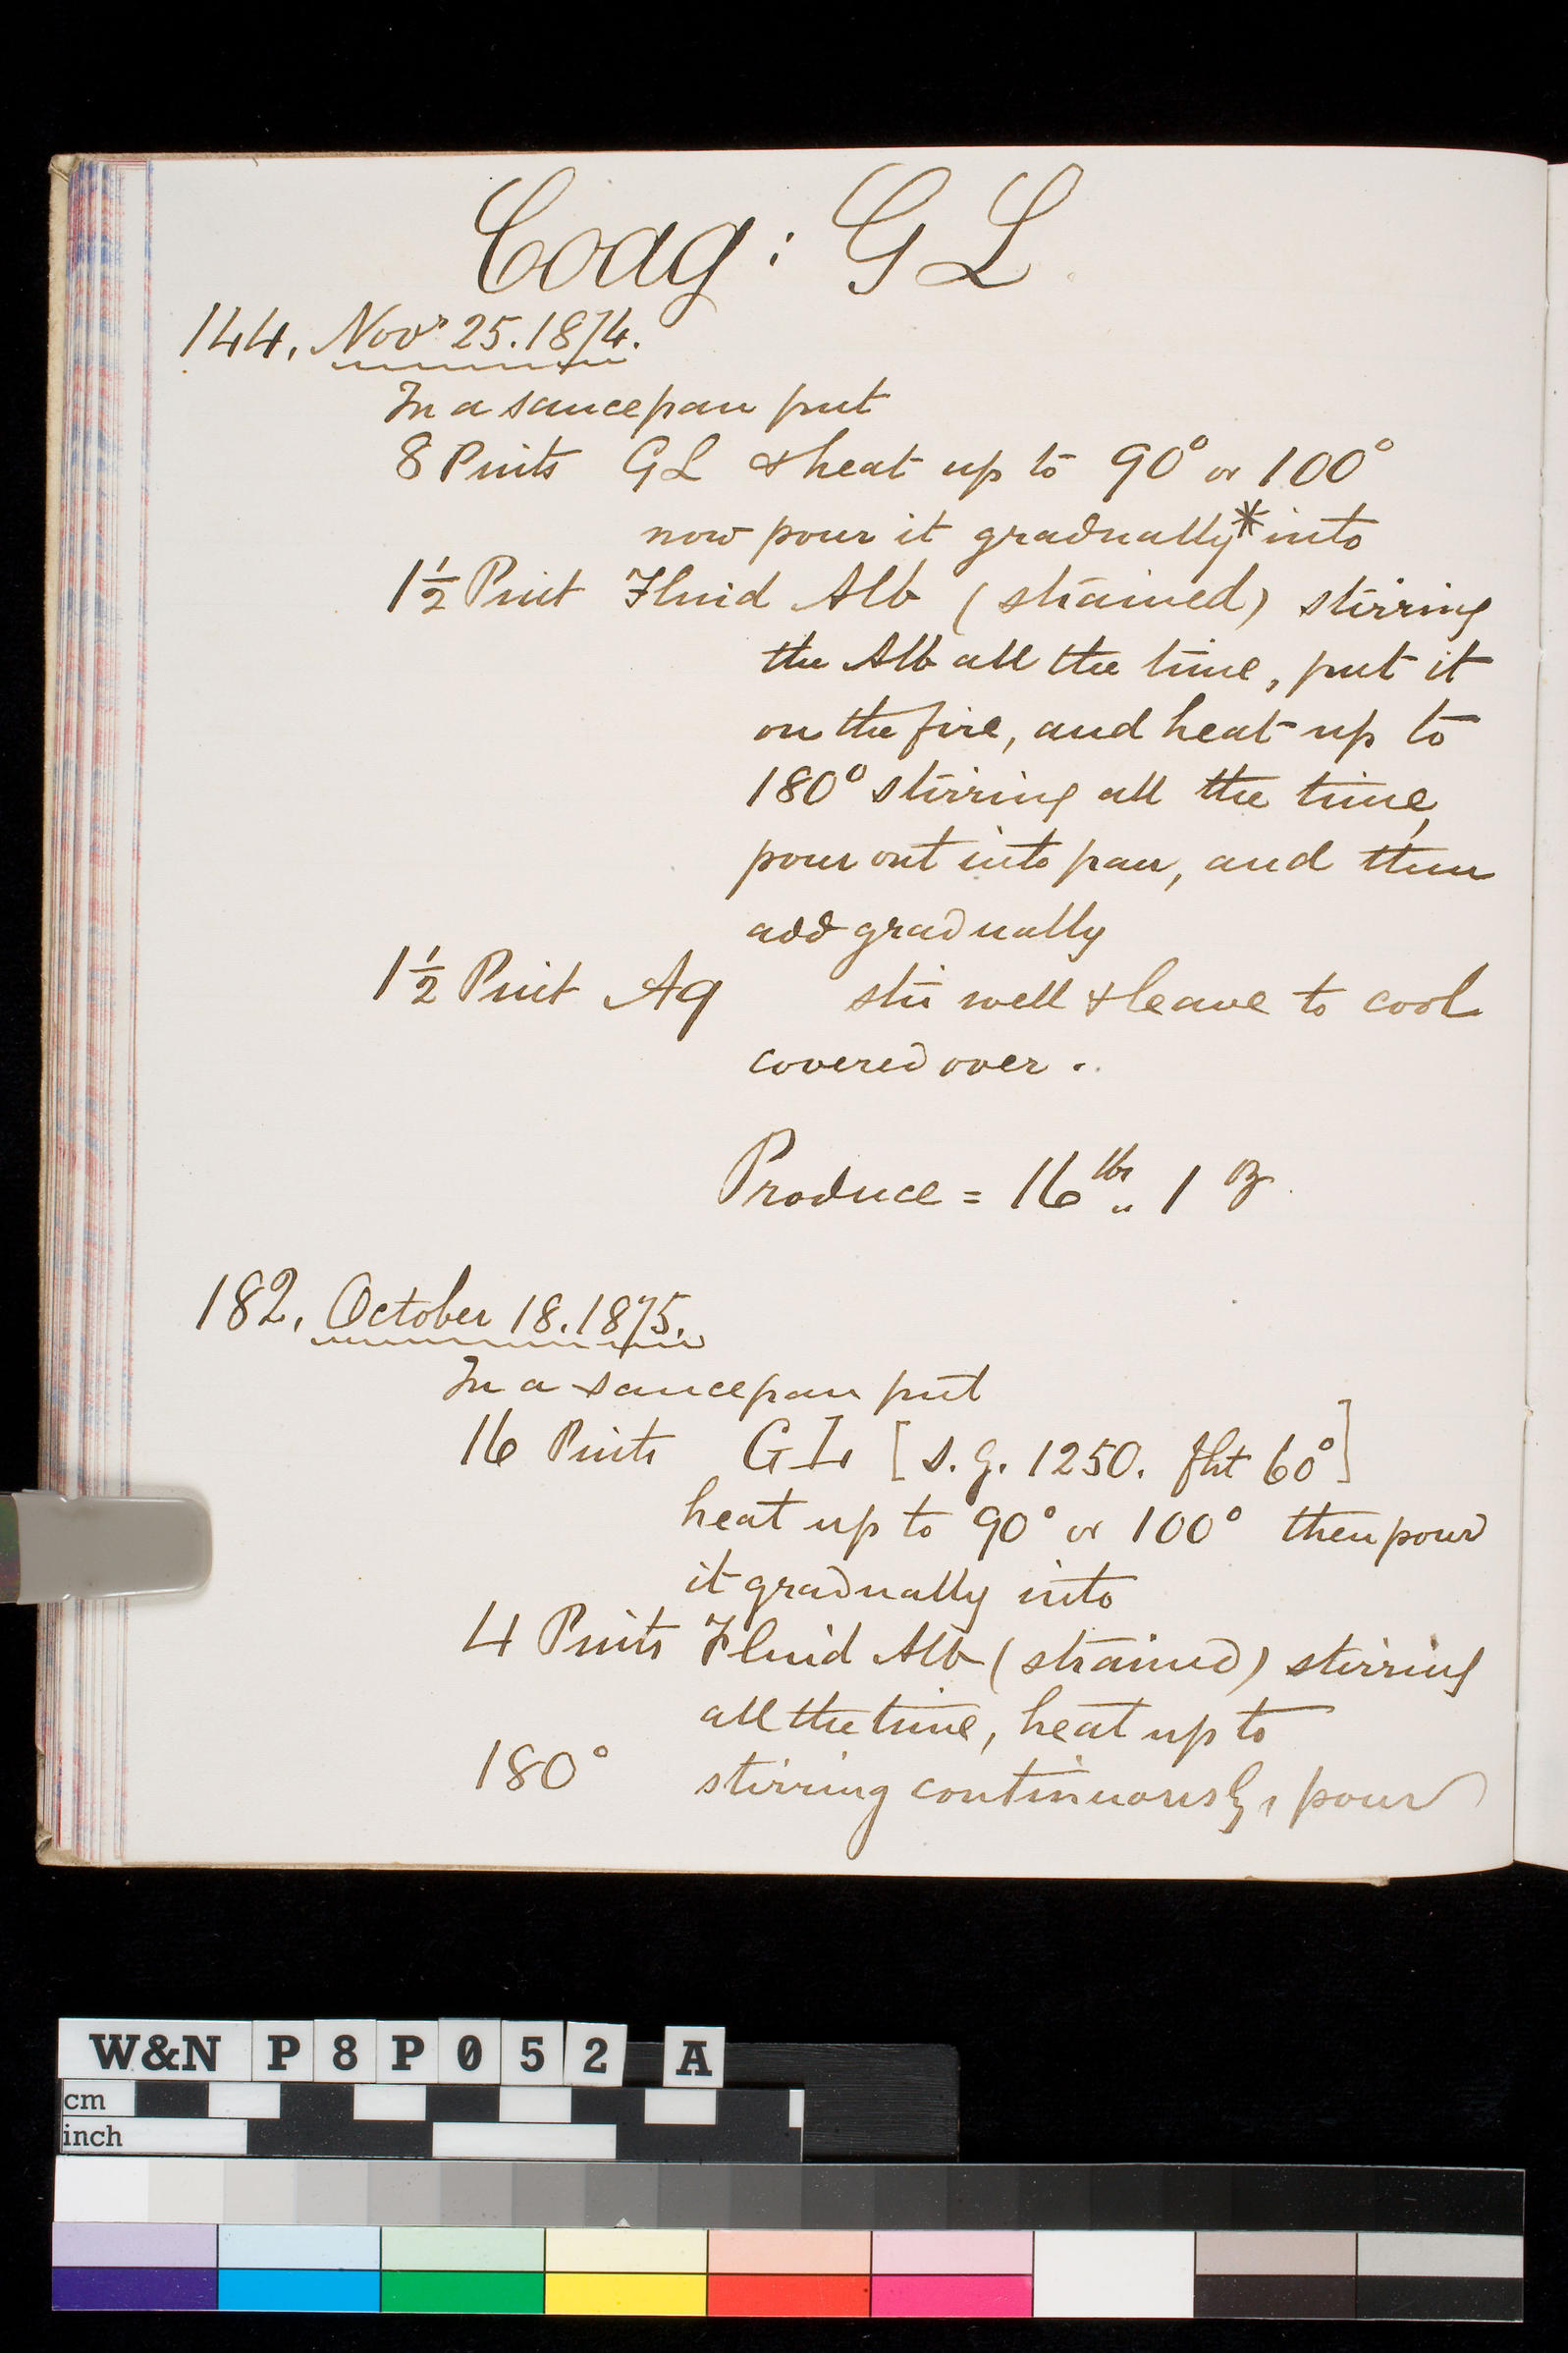 Coag: GL
144. Novr 25. 1874.
In a saucepan put
8 Pints GL & heat up to 90° or 100°
now pour it gradually* into
1½ Pint Fluid Alb (strained) stirring
the Alb all the time, put it
on the fire, and heat up to
180° stirring all the time,
pour out into pan, and then
add gradually
1½ Pint Aq stir well & leave to cool
covered over.
Produce = 16 lbs „ 1 oz.
182. October 18. 1875.
In a saucepan put
16 Pints GL [s.g. 1250. fht 60°]
heat up to 90° or 100° then pour
it gradually into
4 Pints Fluid Alb (strained) stirring
all the time, heat up to
180° stirring continuously, pour
W&N P8P052 A
cm
inch